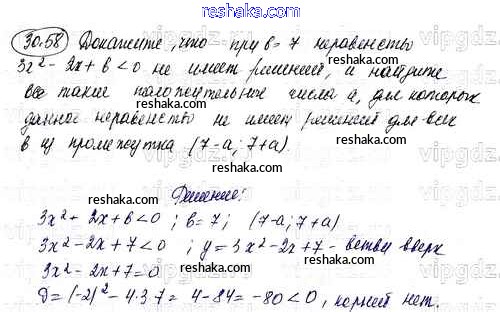 30.58 Докажите, что при b = 7 неравенство
3x² - 2x + b < 0 не имеет решений, и найдите
все такие положительные числа a, для которых
данное неравенство не имеет решений для всех
b из промежутка (7-a; 7+a).
Решение:
3x² + 2x + b < 0 ; b = 7 ; (7-a; 7+a)
3x² - 2x + 7 < 0 ; y = 3x² - 2x + 7 - ветви вверх
3x² - 2x + 7 = 0
D = (-2)² - 4·3·7 = 4 - 84 = -80 < 0, корней нет.
reshaka.com
reshaka.com
reshaka.com
reshaka.com
reshaka.com
reshaka.com
reshaka.com
reshaka.com
reshaka.com